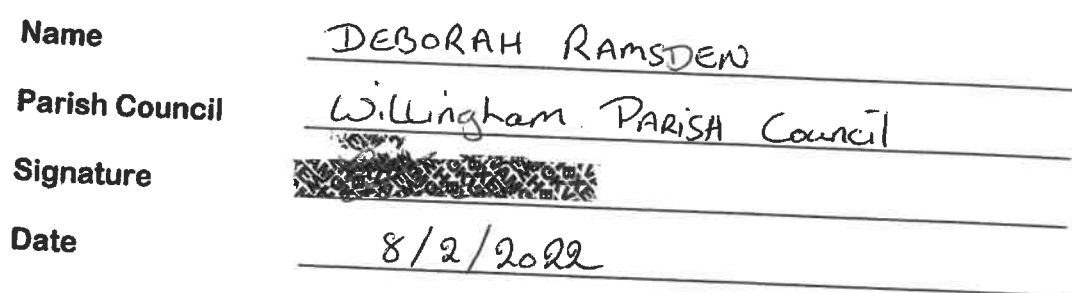 Name DEBORAH RAMSDEN
Parish Council Willingham PARISH Council
Signature
Date 8/2/2022